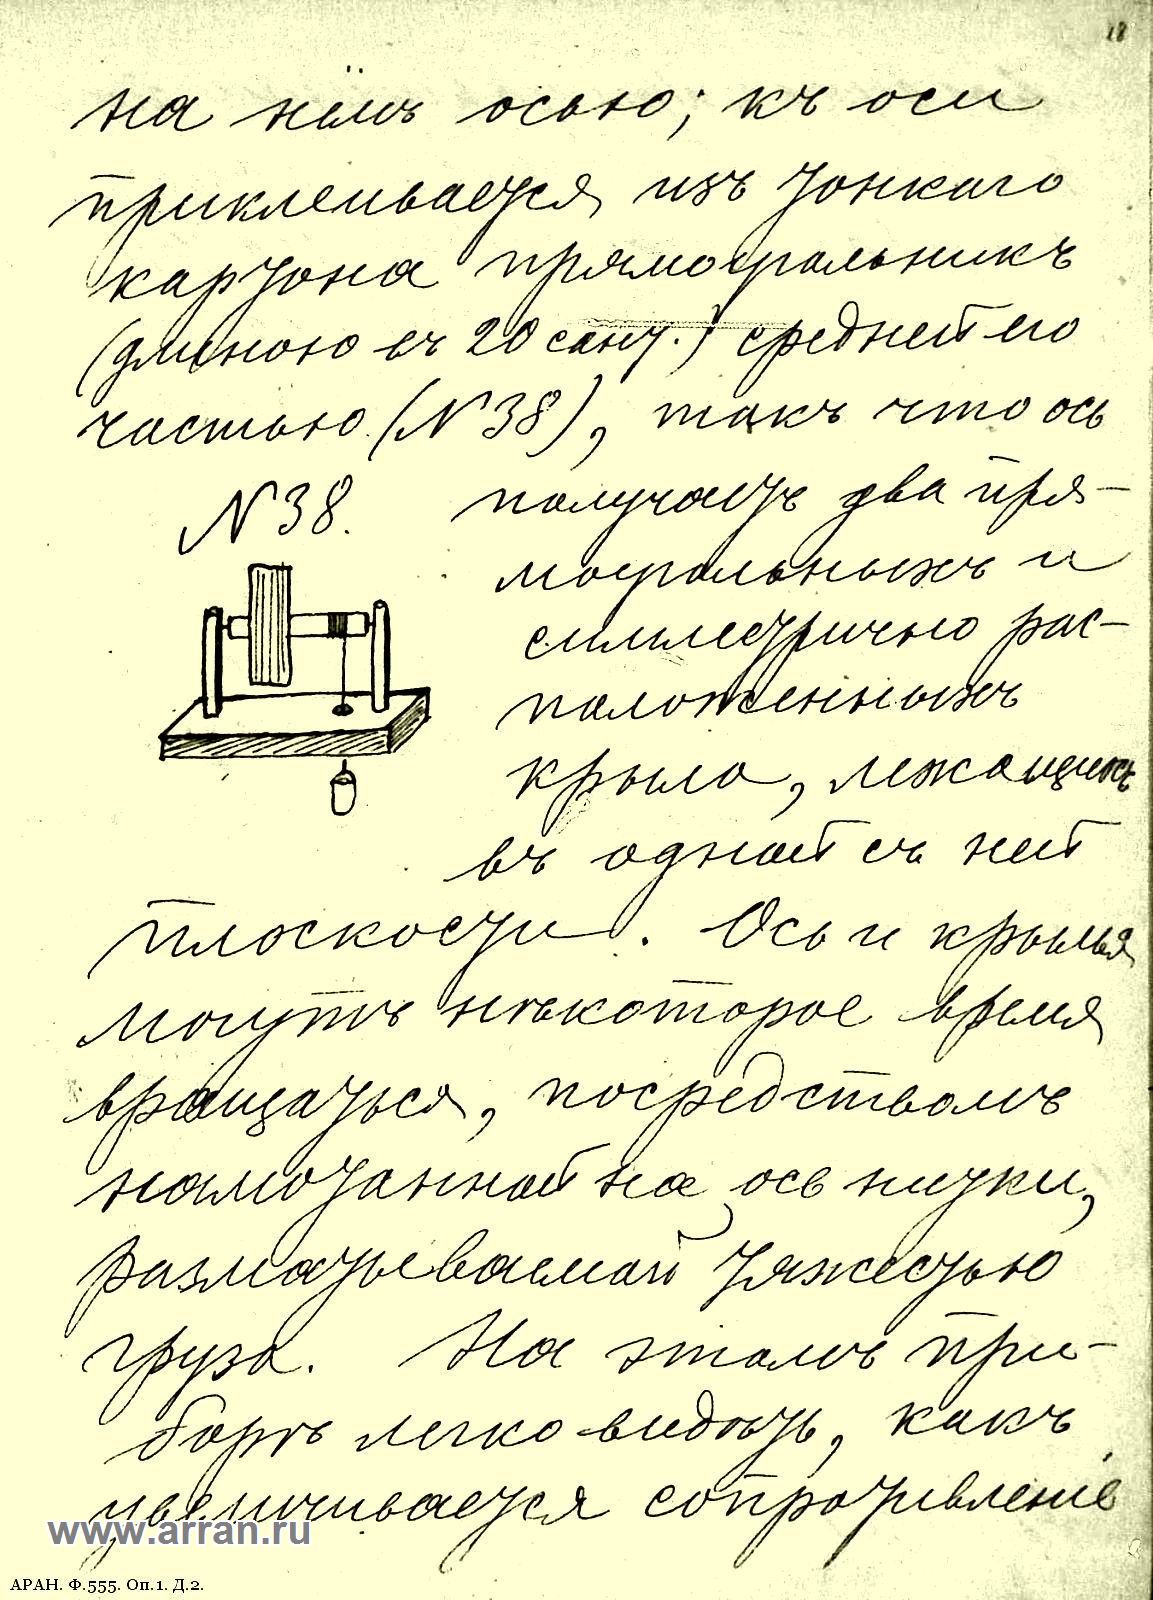 18
на нёмъ осью; къ оси
приклеивается изъ тонкаго
картона прямоугольникъ
(длиною въ 20 сант.) средней его
частью (N 38), такъ что ось
N 38.
получаетъ два пря-
моугольныхъ и
симметрично рас-
положенныхъ
крыла, лежащихъ
въ одной съ ней
плоскости. Ось и крылья
могутъ нѣкоторое время
вращаться, посредствомъ
намотанной на ось нитки,
разматываемой тяжестью
груза. На этомъ при-
борѣ легко видѣть, какъ
увеличивается сопротивленіе
www.arran.ru
АРАН. Ф.555. Оп.1. Д.2.